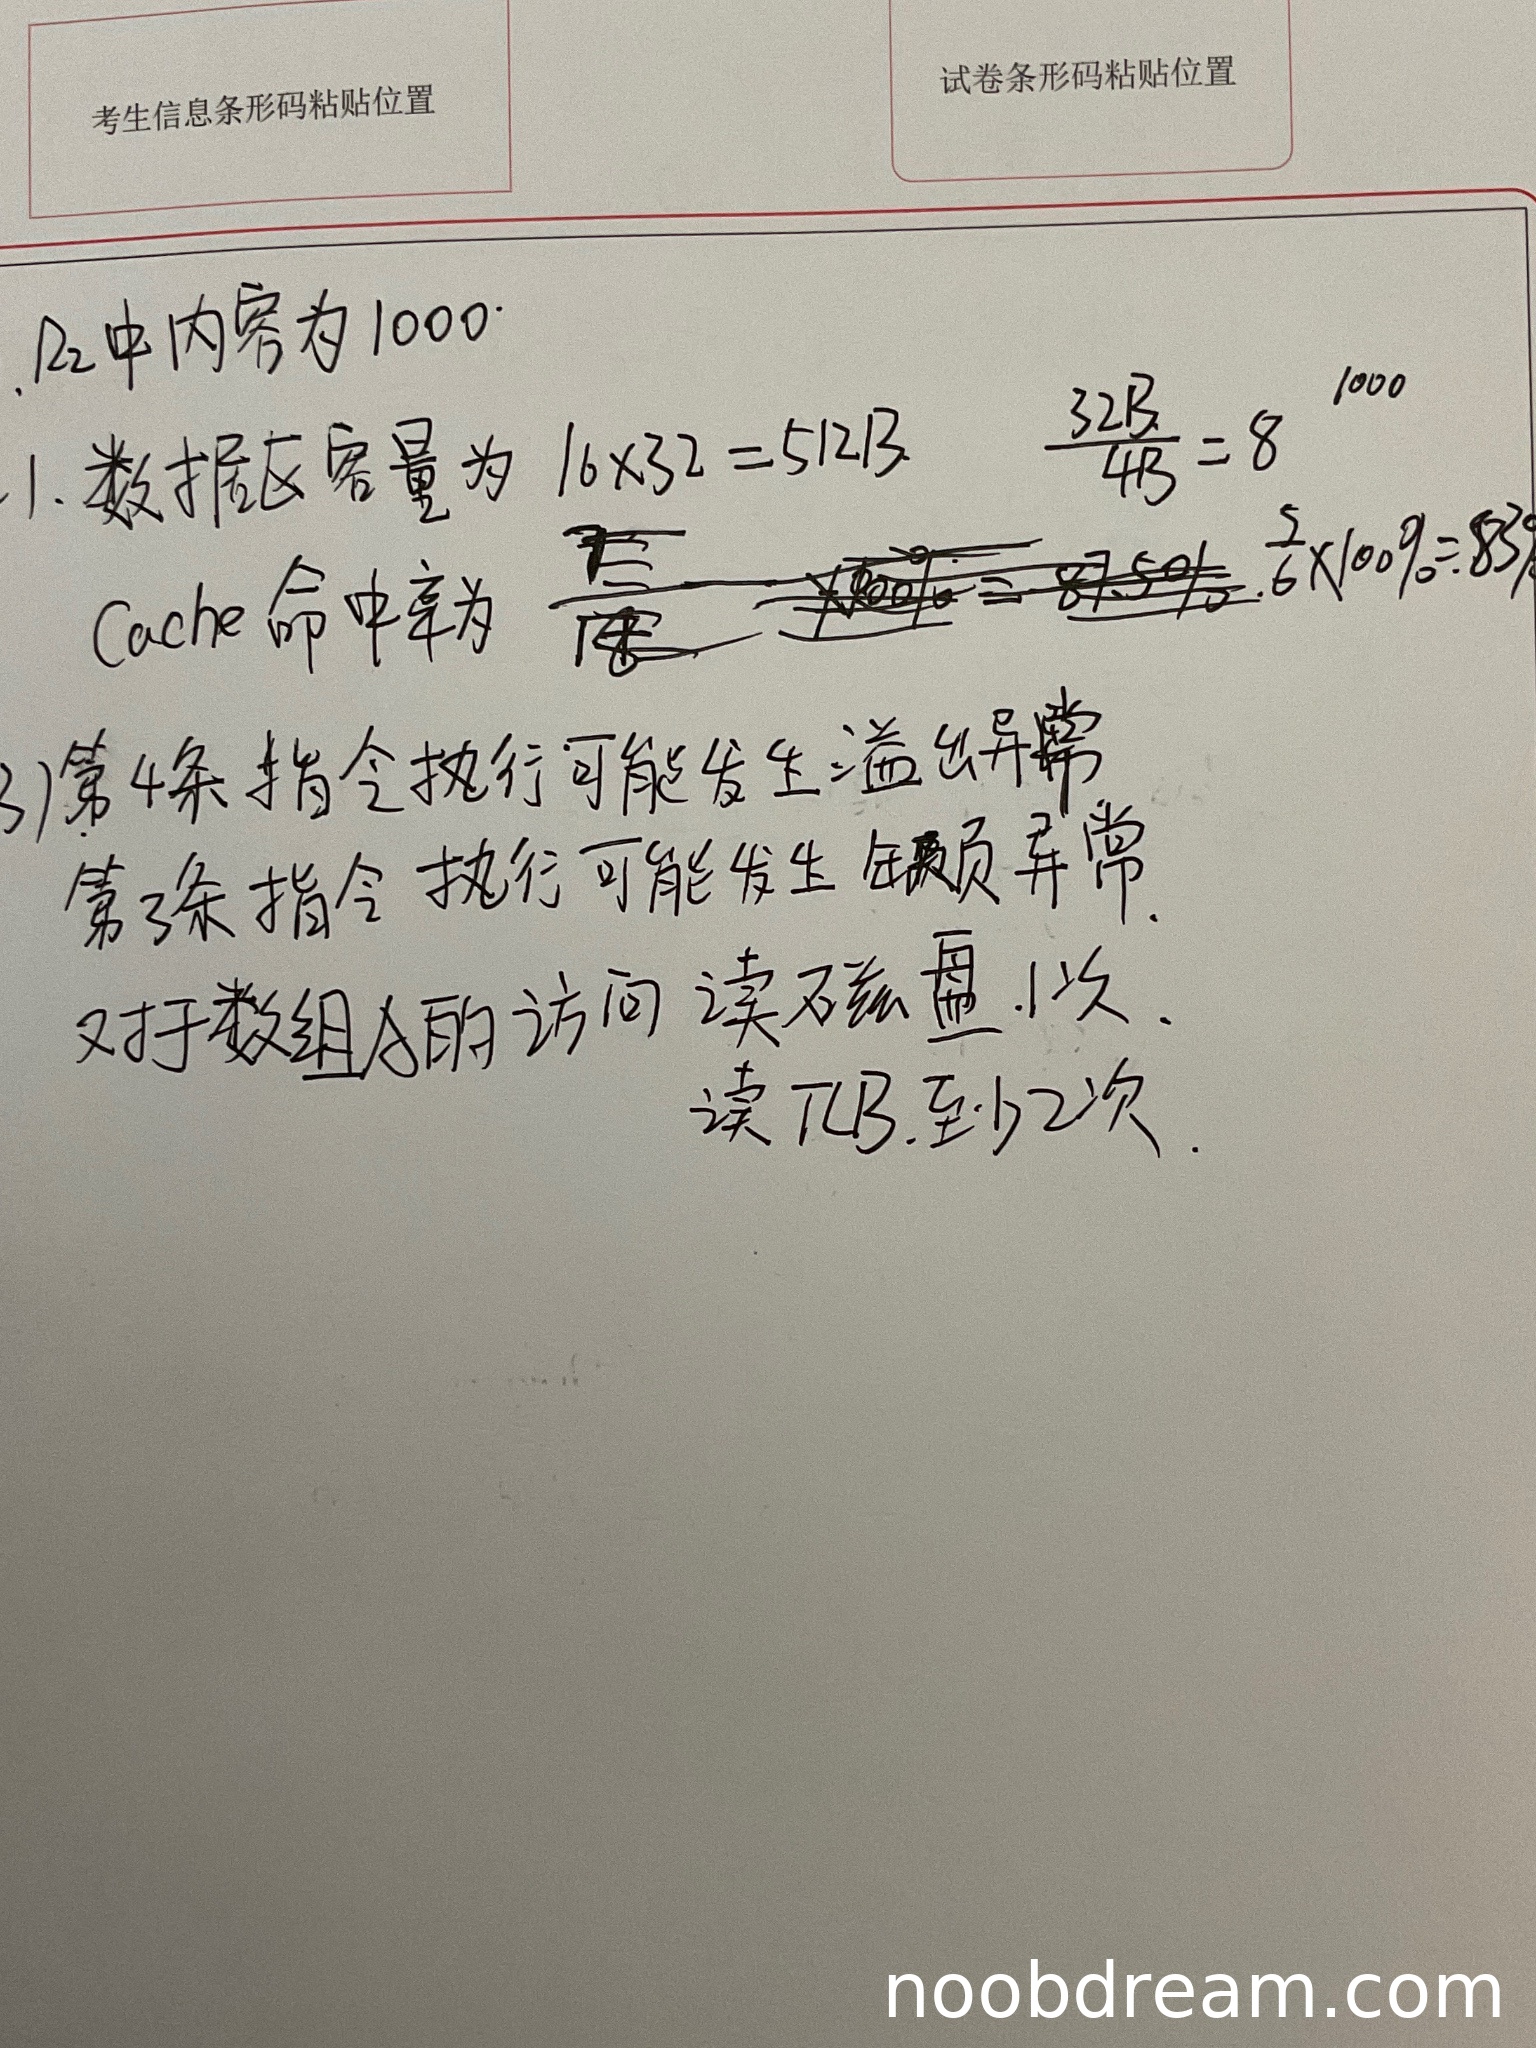 考生信息条形码粘贴位置
试卷条形码粘贴位置
.R2中内容为1000.
1.数据区容量为 16×32=512B. 32B/4B=8 1000
Cache命中率为 5/6×100%=83%
3)第4条指令执行可能发生溢出异常
第3条指令执行可能发生缺页异常.
对于数组A的访问 读磁盘.1次.
读TLB.至少2次.
noobdream.com